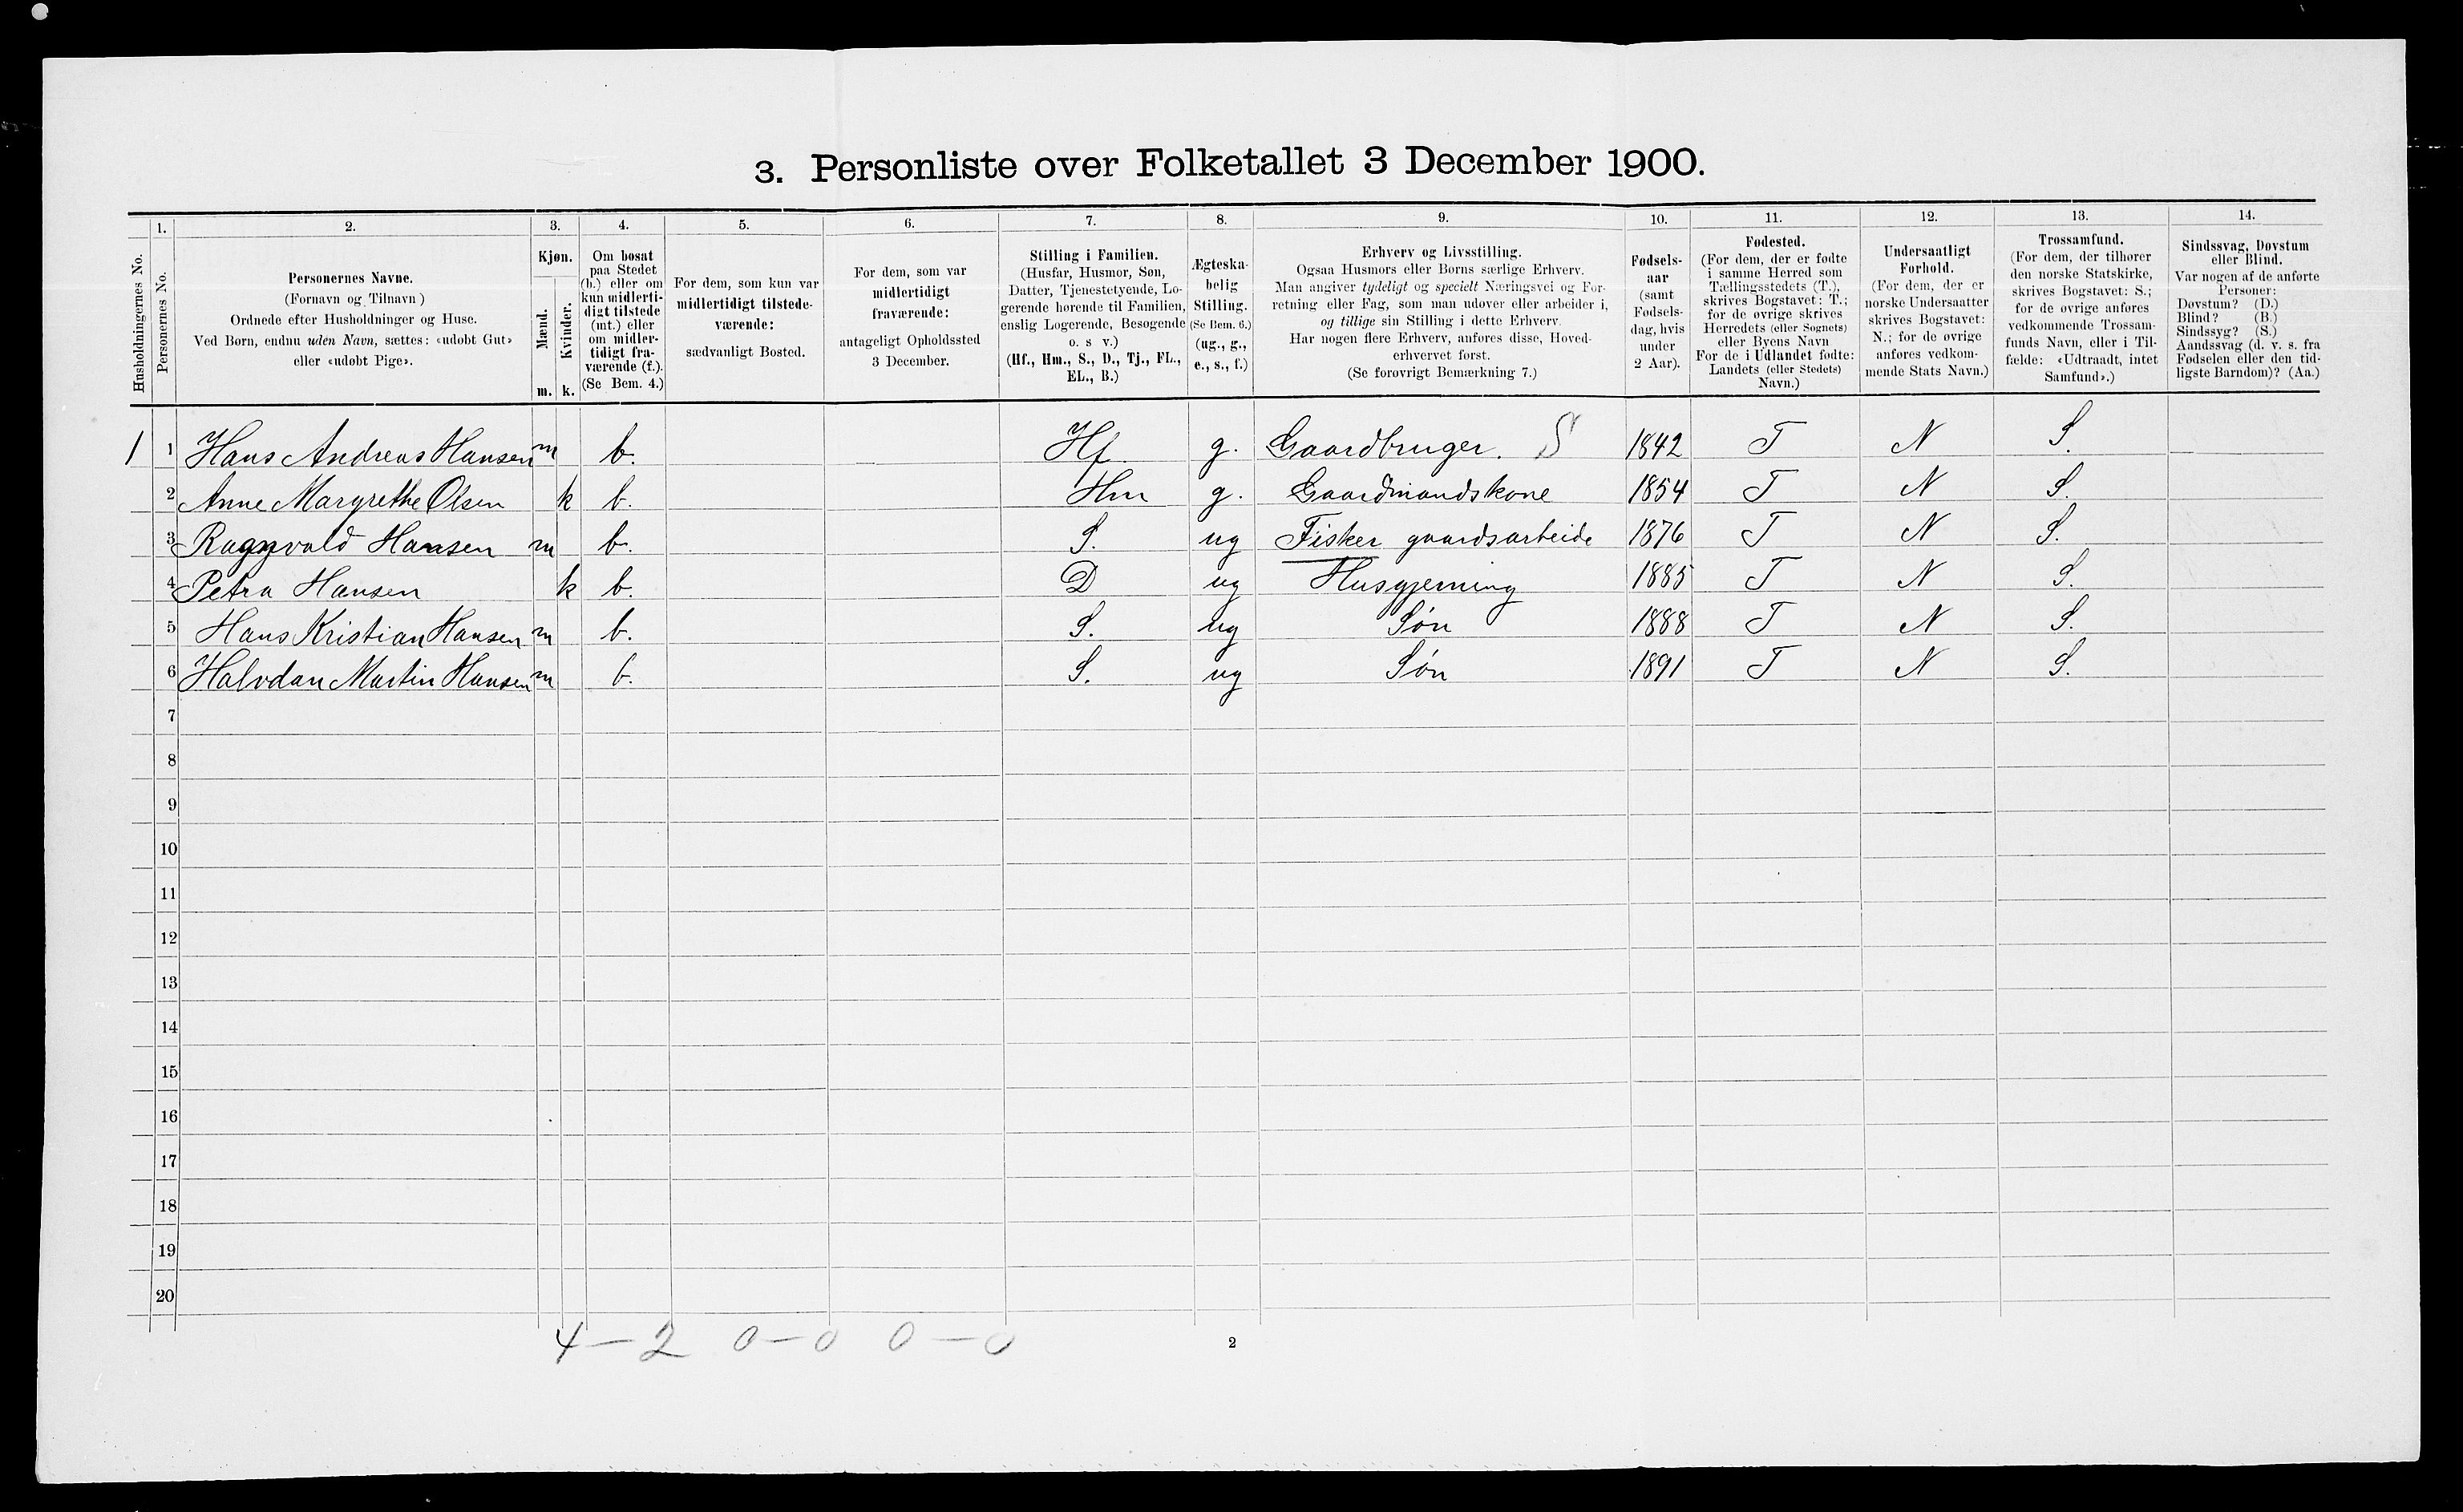 3. Personliste over Folketallet 3 December 1900.
1. 2. 3. 4. 5. 6. 7. 8. 9. 10. 11. 12. 13. 14.
Husholdningernes No.
Personernes No.
Personernes Navne.
(Fornavn og Tilnavn)
Ordnede efter Husholdninger og Huse.
Ved Børn, endnu uden Navn, sættes: «udøbt Gut»
eller «udøbt Pige».
Kjøn.
Mænd.
Kvinder.
m. k.
Om bosat
paa Stedet
(b.) eller om
kun midlerti-
digt tilstede
(mt.) eller
om midler-
tidigt fra-
værende (f.).
(Se Bem. 4.)
For dem, som kun var
midlertidigt tilstede-
værende:
sædvanligt Bosted.
For dem, som var
midlertidigt
fraværende:
antageligt Opholdssted
3 December.
Stilling i Familien.
(Husfar, Husmor, Søn,
Datter, Tjenestetyende, Lo-
gerende hørende til Familien,
enslig Logerende, Besøgende
o. s v.)
(Hf., Hm., S., D., Tj., FL.,
EL., B.)
Ægteska-
belig
Stilling.
(Se Bem. 6.)
(ug., g.,
e., s., f.)
Erhverv og Livsstilling.
Ogsaa Husmors eller Børns særlige Erhverv.
Man angiver tydeligt og specielt Næringsvei og For-
retning eller Fag, som man udøver eller arbeider i,
og tillige sin Stilling i dette Erhverv.
Har nogen flere Erhverv, anføres disse, Hoved-
erhvervet først.
(Se forøvrigt Bemærkning 7.)
Fødsels-
aar
(samt
Fødsels-
dag, hvis
under
2 Aar).
Fødested.
(For dem, der er fødte
i samme Herred som
Tællingsstedets (T.),
skrives Bogstavet: T.;
for de øvrige skrives
Herredets (eller Sognets)
eller Byens Navn
For de i Udlandet fødte:
Landets (eller Stedets)
Navn.)
Undersaatligt
Forhold.
(For dem, der er
norske Undersaatter
skrives Bogstavet:
N.; for de øvrige
anføres vedkom-
mende Stats Navn.)
Trossamfund.
(For dem, der tilhører
den norske Statskirke,
skrives Bogstavet: S.;
for de øvrige anføres
vedkommende Trossam-
funds Navn, eller i Til-
fælde: «Udtraadt, intet
Samfund».)
Sindssvag, Døvstum
eller Blind.
Var nogen af de anførte
Personer:
Døvstum? (D.)
Blind? (B.)
Sindssyg? (S.)
Aandssvag (d. v. s. fra
Fødselen eller den tid-
ligste Barndom)? (Aa.)
1 1 Hans Andreas Hansen m b. Hf. g. Gaardbruger. S 1842 T N S.
2 Anne Margrethe Olsen k b. Hm g. Gaardmandskone 1854 T N S.
3 Ragnvald Hansen m b. S. ug Fisker gaardsarbeide 1876 T N S.
4 Petra Hansen k b. D ug Husgjerning 1885 T N S.
5 Hans Kristian Hansen m b. S. ug Søn 1888 T N S.
6 Halvdan Martin Hansen m b. S. ug Søn 1891 T N S.
7
8
9
10
11
12
13
14
15
16
17
18
19
20
4 — 2 0 — 0 0 — 0
2